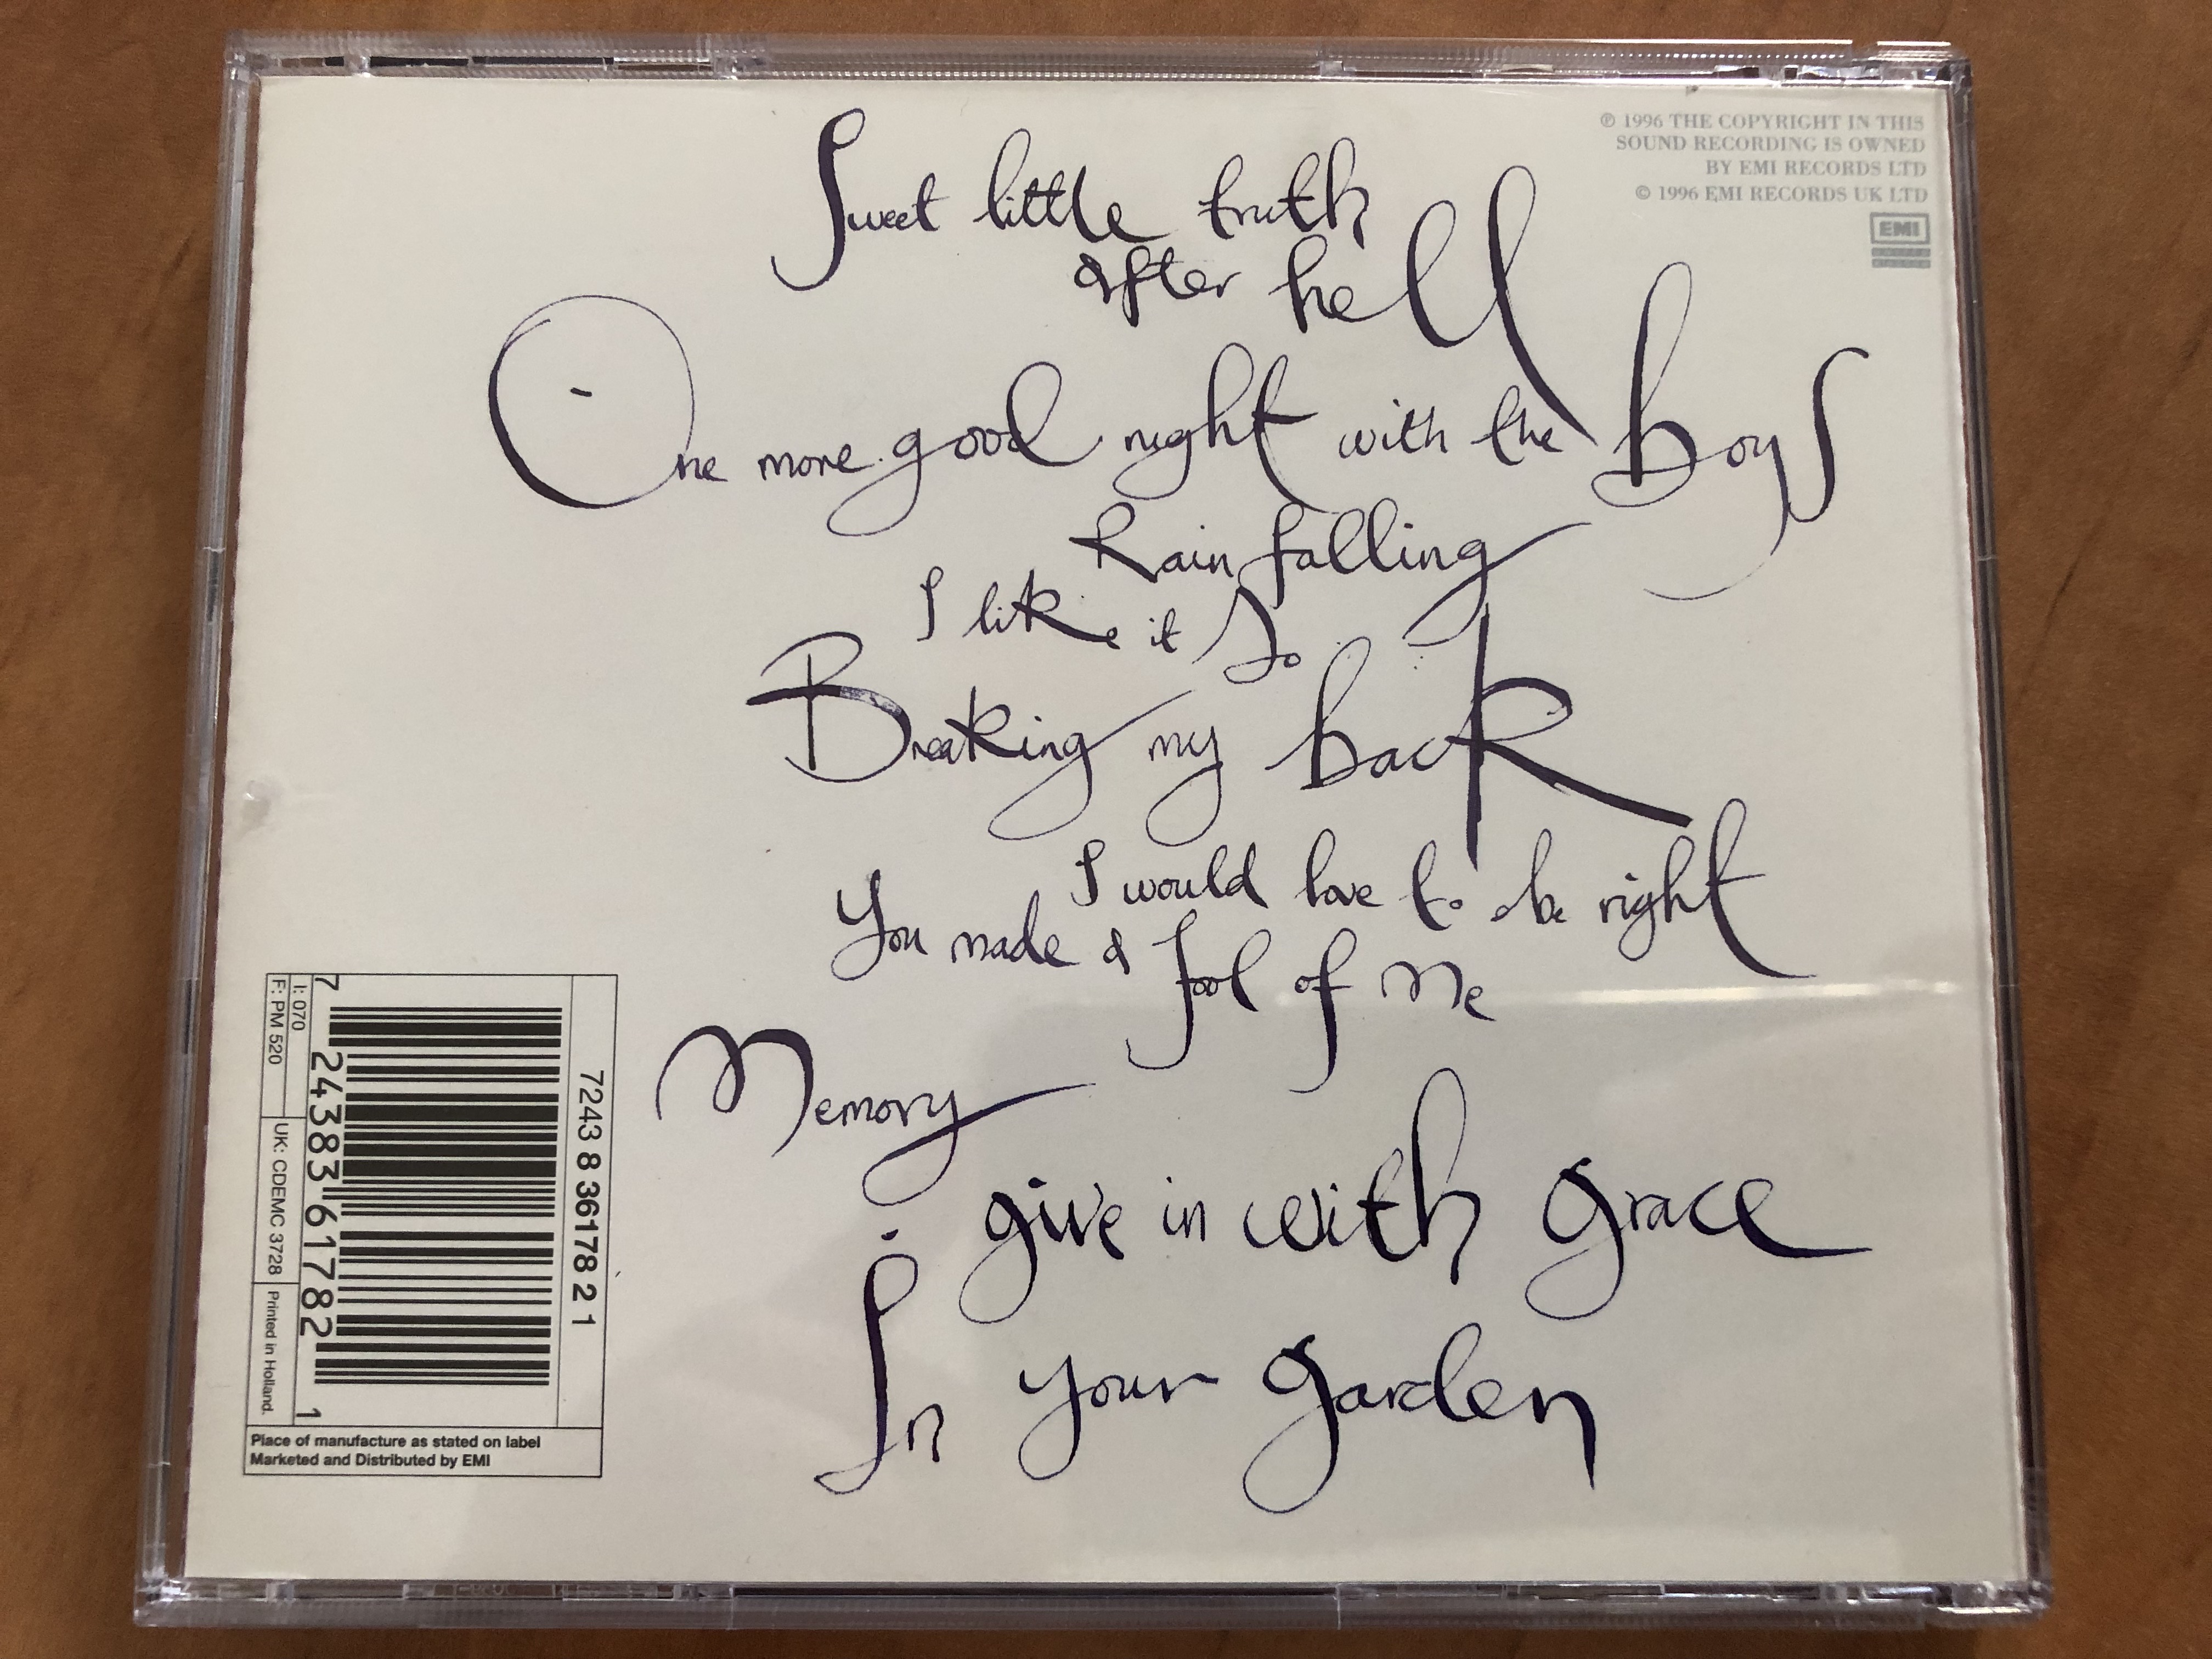 ℗ 1996 THE COPYRIGHT IN THIS
SOUND RECORDING IS OWNED
BY EMI RECORDS LTD
© 1996 EMI RECORDS UK LTD
EMI
Sweet little truth
after hell
One more good night with the boys
Rain falling
I like it so
Breaking my back
I would love to be right
You made a fool of me
Memory
give in with grace
In your garden
7243 8 36178 2 1
7 24383 61782 1
I: 070
F: PM 520
UK: CDEMC 3728
Printed in Holland.
Place of manufacture as stated on label
Marketed and Distributed by EMI